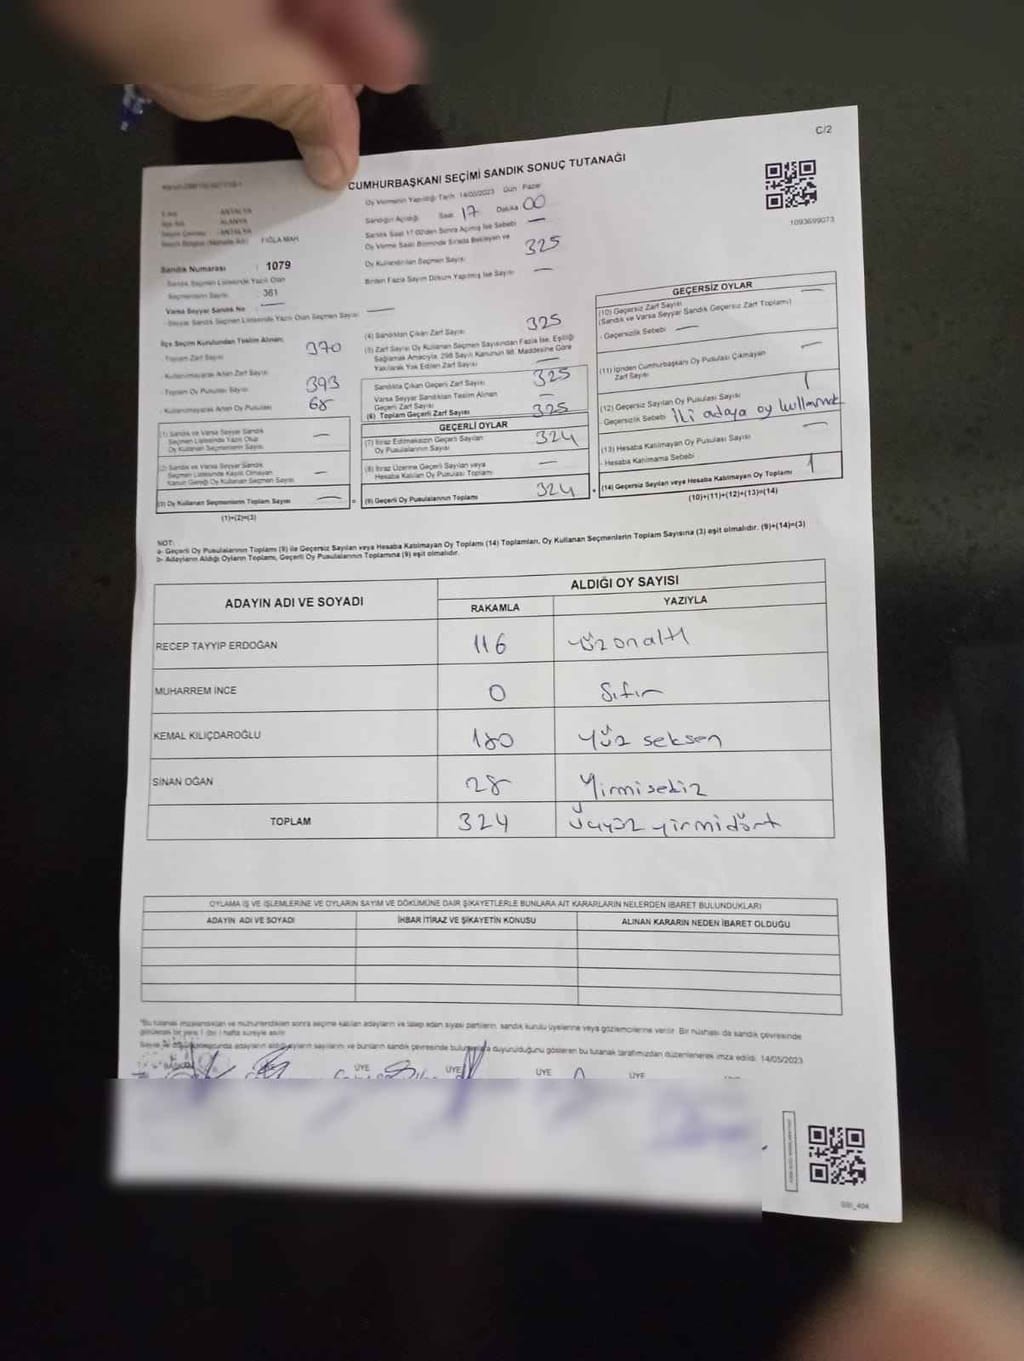 C/2
CUMHURBAŞKANI SEÇİMİ SANDIK SONUÇ TUTANAĞI
Oy Vermenin Yapıldığı Tarih 14/05/2023 Gün Pazar
Sandığın Açıldığı Saat 17 Dakika 00
Sandık Saat 17:00'den Sonra Açılmış İse Sebebi —
Oy Verme Saati Bitiminde Sırada Bekleyen ve
Oy Kullandırılan Seçmen Sayısı 325
Birden Fazla Sayım Döküm Yapılmış İse Sayısı —
1093699073
ANTALYA
ALANYA
ANTALYA
FIĞLA MAH.
Sandık Numarası : 1079
Sandık Seçmen Listesinde Yazılı Olan
Seçmenlerin Sayısı : 361
Varsa Seyyar Sandık No —
Seyyar Sandık Seçmen Listesinde Yazılı Olan Seçmen Sayısı —
İlçe Seçim Kurulundan Teslim Alınan:
Toplam Zarf Sayısı 370
Kullanılmayarak Artan Zarf Sayısı
Toplam Oy Pusulası Sayısı 393
Kullanılmayarak Artan Oy Pusulası 68
(1) Sandık ve Varsa Seyyar Sandık
Seçmen Listesinde Yazılı Olup
Oy Kullanan Seçmenlerin Sayısı —
(2) Sandık ve Varsa Seyyar Sandık
Seçmen Listesinde Kayıtlı Olmayan
Kanun Gereği Oy Kullanan Seçmen Sayısı —
(3) Oy Kullanan Seçmenlerin Toplam Sayısı —
(1)+(2)=(3)
(4) Sandıktan Çıkan Zarf Sayısı 325
(5) Zarf Sayısı Oy Kullanan Seçmen Sayısından Fazla İse, Eşitliği
Sağlamak Amacıyla, 298 Sayılı Kanunun 98. Maddesine Göre
Yakılarak Yok Edilen Zarf Sayısı —
Sandıkta Çıkan Geçerli Zarf Sayısı 325
Varsa Seyyar Sandıktan Teslim Alınan
Geçerli Zarf Sayısı —
(6) Toplam Geçerli Zarf Sayısı 325
GEÇERLİ OYLAR
(7) İtiraz Edilmeksizin Geçerli Sayılan
Oy Pusulalarının Sayısı 324
(8) İtiraz Üzerine Geçerli Sayılan veya
Hesaba Katılan Oy Pusulası Toplamı —
(9) Geçerli Oy Pusulalarının Toplamı 324
GEÇERSİZ OYLAR
(10) Geçersiz Zarf Sayısı
(Sandık ve Varsa Seyyar Sandık Geçersiz Zarf Toplamı) —
- Geçersizlik Sebebi —
(11) İçinden Cumhurbaşkanı Oy Pusulası Çıkmayan
Zarf Sayısı —
(12) Geçersiz Sayılan Oy Pusulası Sayısı 1
- Geçersizlik Sebebi İki adaya oy kullanmak
(13) Hesaba Katılmayan Oy Pusulası Sayısı —
- Hesaba Katılmama Sebebi
(14) Geçersiz Sayılan veya Hesaba Katılmayan Oy Toplamı 1
(10)+(11)+(12)+(13)=(14)
NOT:
a- Geçerli Oy Pusulalarının Toplamı (9) ile Geçersiz Sayılan veya Hesaba Katılmayan Oy Toplamı (14) Toplamları, Oy Kullanan Seçmenlerin Toplam Sayısına (3) eşit olmalıdır. (9)+(14)=(3)
b- Adayların Aldığı Oyların Toplamı, Geçerli Oy Pusulalarının Toplamına (9) eşit olmalıdır.
ADAYIN ADI VE SOYADI
ALDIĞI OY SAYISI
RAKAMLA YAZIYLA
RECEP TAYYIP ERDOĞAN 116 Yüzonaltı
MUHARREM İNCE 0 Sıfır
KEMAL KILIÇDAROĞLU 180 Yüz seksen
SİNAN OĞAN 28 Yirmisekiz
TOPLAM 324 Üçyüz yirmidört
OYLAMA İŞ VE İŞLEMLERİNE VE OYLARIN SAYIM VE DÖKÜMÜNE DAİR ŞİKAYETLERLE BUNLARA AİT KARARLARIN NELERDEN İBARET BULUNDUKLARI
ADAYIN ADI VE SOYADI İHBAR İTİRAZ VE ŞİKAYETİN KONUSU ALINAN KARARIN NEDEN İBARET OLDUĞU
"Bu tutanak imzalandıktan ve mühürlendikten sonra seçime katılan adayların ve talep eden siyasi partilerin, sandık kurulu üyelerine veya gözlemcilerine verilir. Bir nüshası da sandık çevresinde
görülecek bir yere 1 (bir) hafta süreyle asılır.
adayların aldığı oyların sayılarını ve bunların sandık çevresinde duyurulduğunu gösteren bu tutanak tarafımızdan düzenlenerek imza edildi. 14/05/2023
BAŞKAN ÜYE ÜYE ÜYE ÜYE